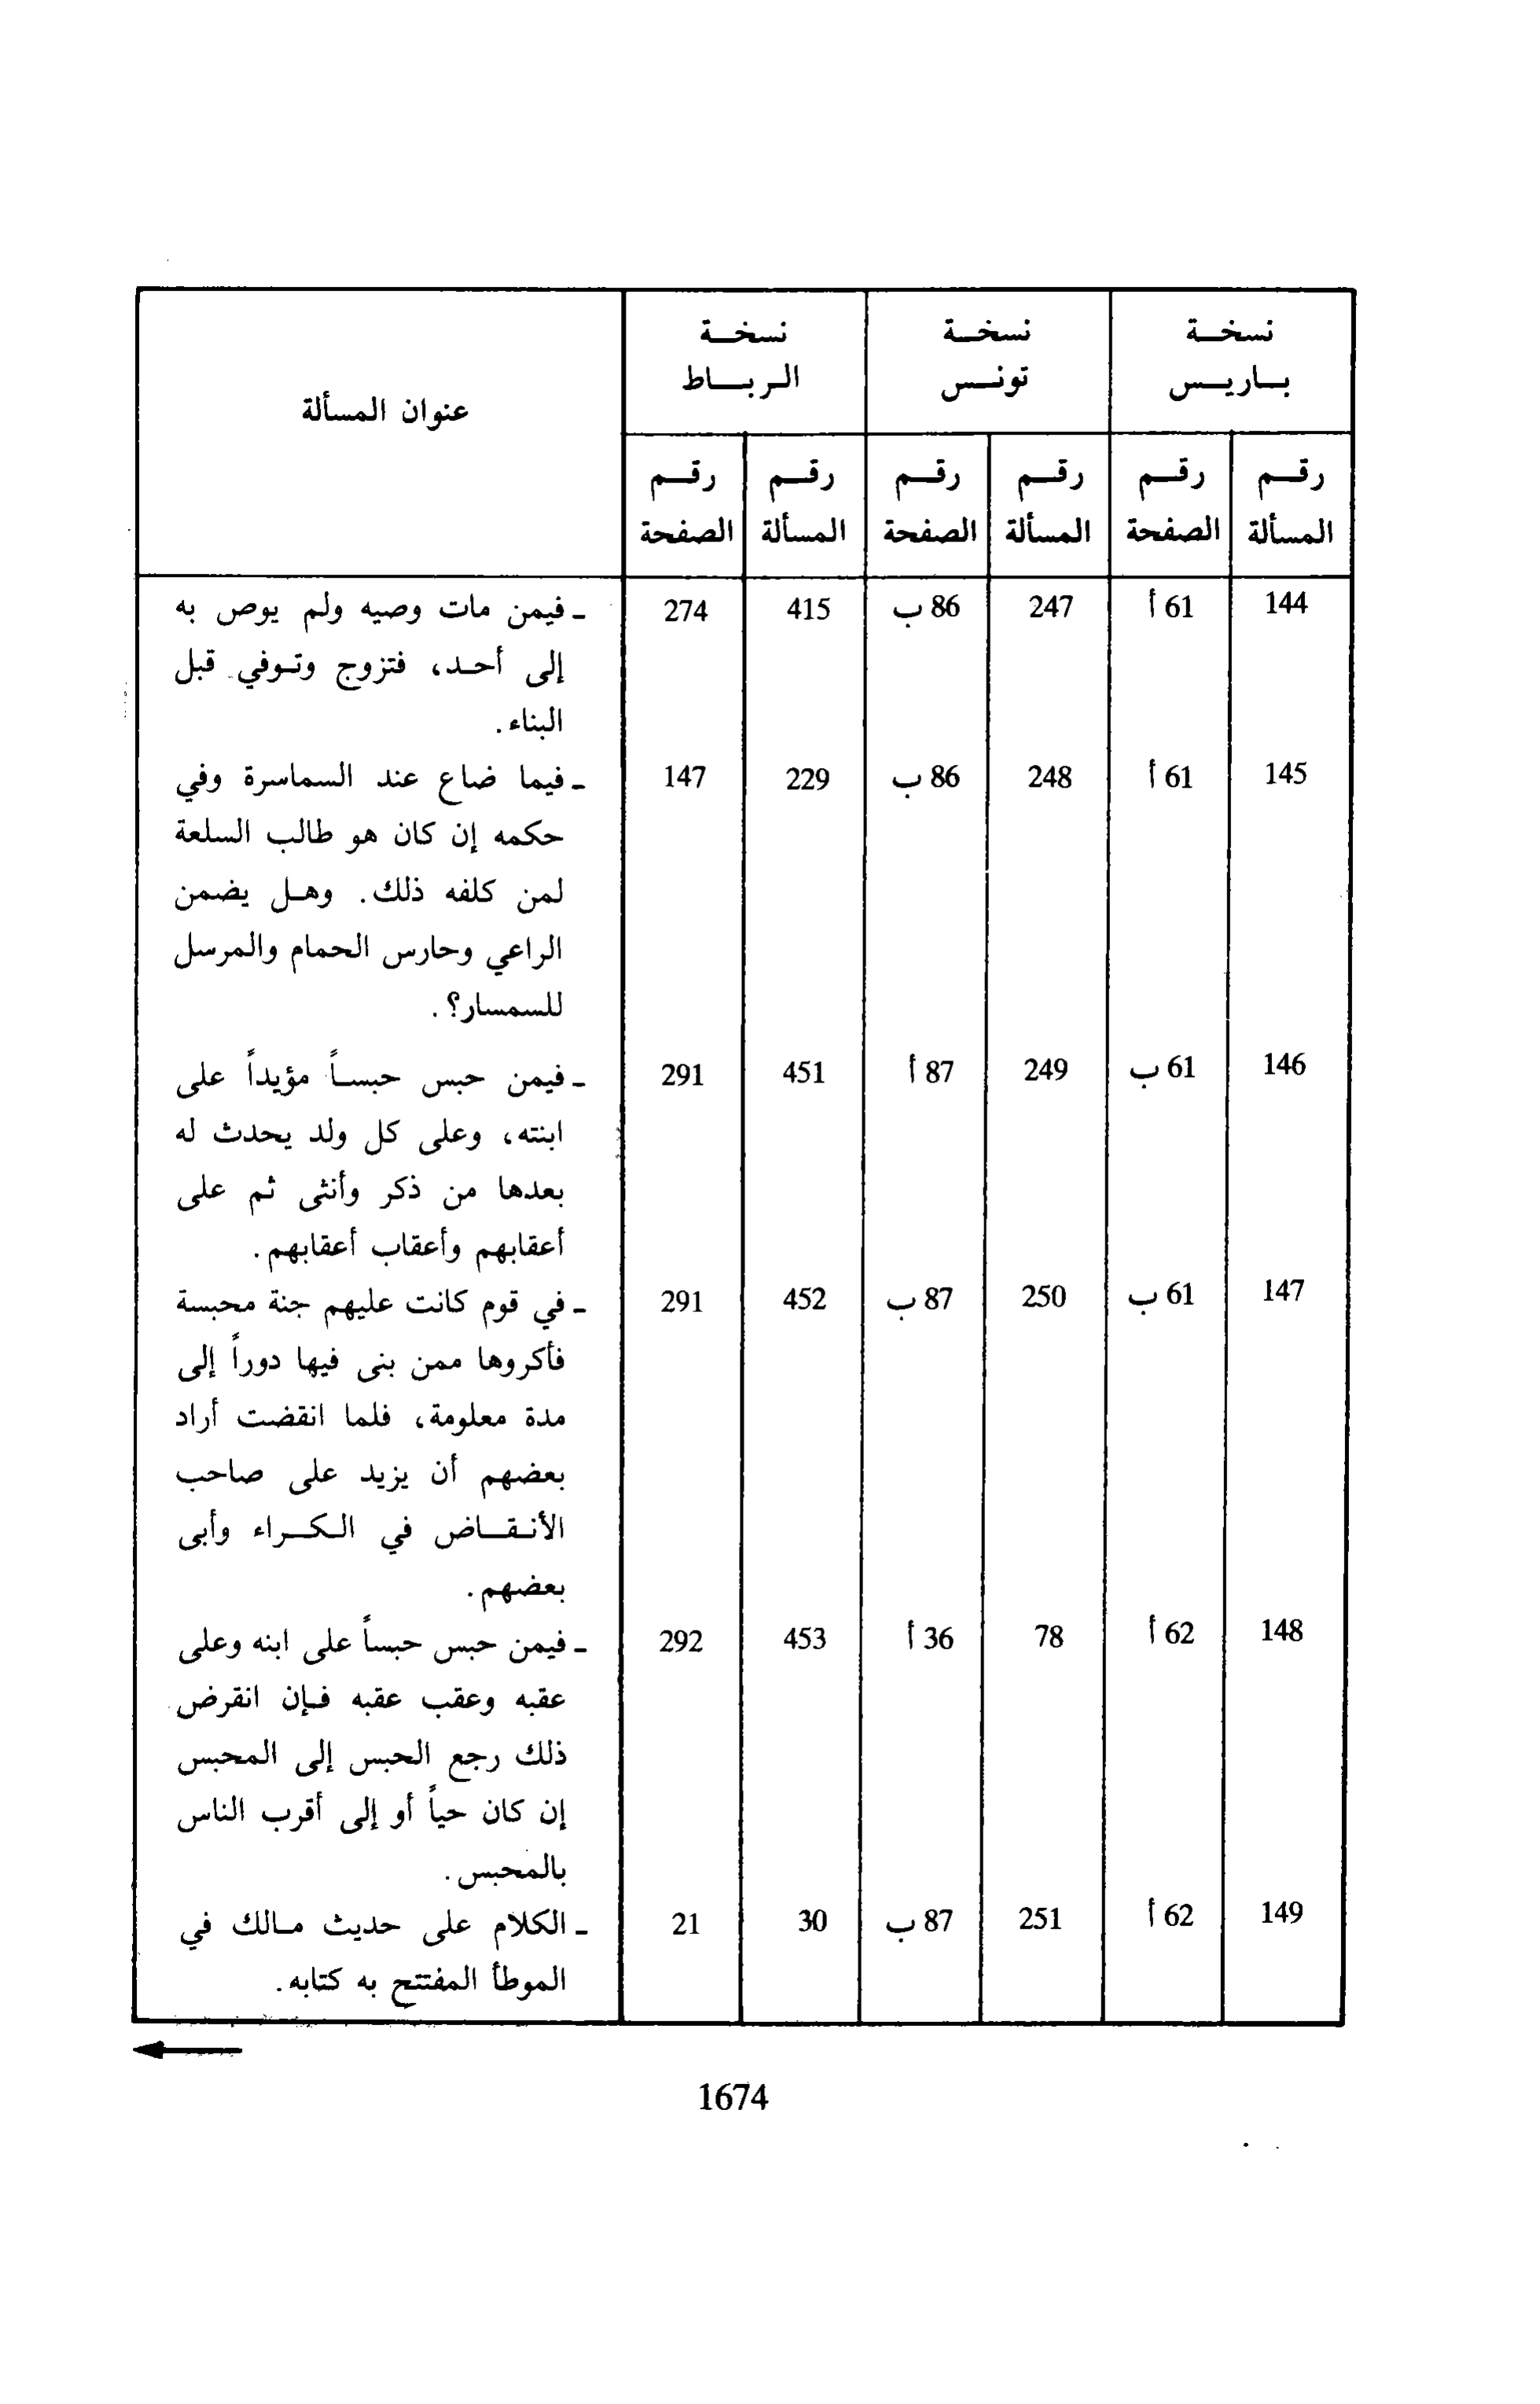 نسخة نسخة نسخة
باريس تونس الرباط
عنوان المسألة
رقم رقم رقم رقم رقم رقم
المسألة الصفحة المسألة الصفحة المسألة الصفحة
144 61 أ 247 86 ب 415 274 - فيمن مات وصيه ولم يوص به
إلى أحد، فتزوج وتوفي قبل
البناء.
145 61 أ 248 86 ب 229 147 - فيما ضاع عند السماسرة وفي
حكمه إن كان هو طالب السلعة
لمن كلفه ذلك. وهل يضمن
الراعي وحارس الحمام والمرسل
للسمسار؟.
146 61 ب 249 87 أ 451 291 - فيمن حبس حبساً مؤبداً على
ابنته، وعلى كل ولد يحدث له
بعدها من ذكر وأنثى ثم على
أعقابهم وأعقاب أعقابهم.
147 61 ب 250 87 ب 452 291 - في قوم كانت عليهم جنة محبسة
فأكروها ممن بنى فيها دوراً إلى
مدة معلومة، فلما انقضت أراد
بعضهم أن يزيد على صاحب
الأنقاض في الكراء وأبى
بعضهم.
148 62 أ 78 36 أ 453 292 - فيمن حبس حبساً على ابنه وعلى
عقبه وعقب عقبه فإن انقرض
ذلك رجع الحبس إلى المحبس
إن كان حياً أو إلى أقرب الناس
بالمحبس.
149 62 أ 251 87 ب 30 21 - الكلام على حديث مالك في
الموطأ المفتتح به كتابه.
1674